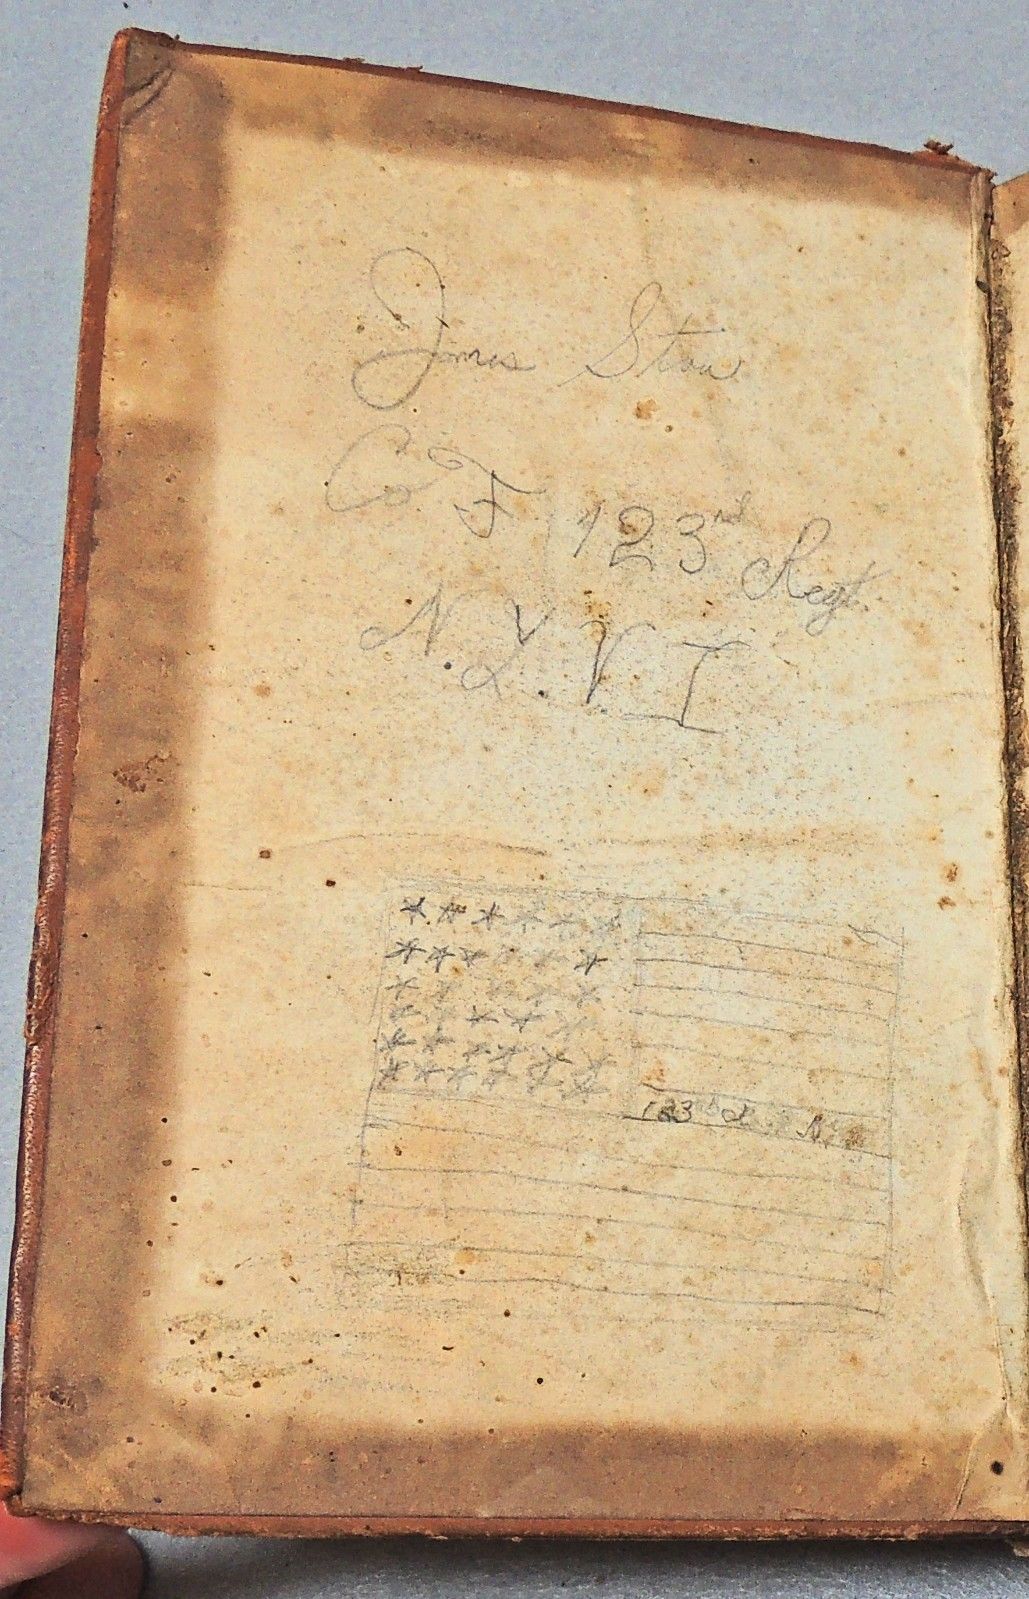 James Stow
Co F 123rd Regt.
N.Y.V.I
123rd N.